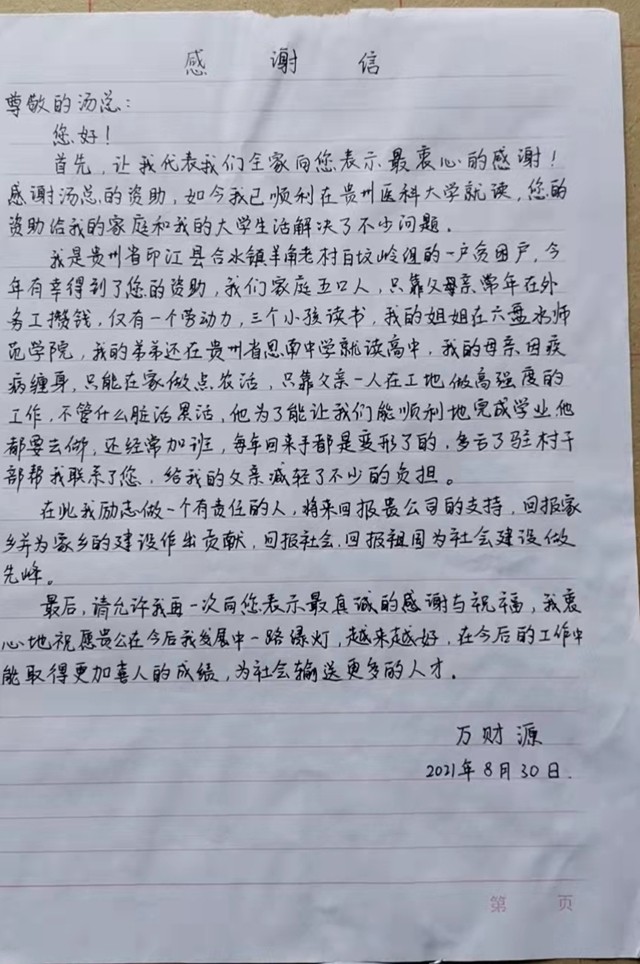 感谢信
尊敬的汤总：
您好！
首先，让我代表我们全家向您表示最衷心的感谢！
感谢汤总的资助，如今我已顺利在贵州医科大学就读，您的
资助给我的家庭和我的大学生活解决了不少问题。
我是贵州省印江县合水镇羊角老村白坟岭组的一户贫困户，今
年有幸得到了您的资助，我们家庭五口人，只靠父母亲常年在外
务工攒钱，仅有一个劳动力，三个小孩读书，我的姐姐在六盘水师
范学院，我的弟弟还在贵州省思南中学就读高中，我的母亲因疾
病缠身，只能在家做点农活，只靠父亲一人在工地做高强度的
工作，不管什么脏活累活，他为了能让我们能顺利地完成学业，他
都要去做，还经常加班，每年回来手都是变形了的，多亏了驻村干
部帮我联系了您，给我的父亲减轻了不少的负担。
在此我励志做一个有责任的人，将来回报贵公司的支持，回报家
乡并为家乡的建设作出贡献，回报社会，回报祖国为社会建设做
先峰。
最后，请允许我再一次向您表示最真诚的感谢与祝福，我衷
心地祝愿贵公在今后我发展中一路绿灯，越来越好，在今后的工作中
能取得更加喜人的成绩，为社会输送更多的人才。
万财源
2021年8月30日.
第 页